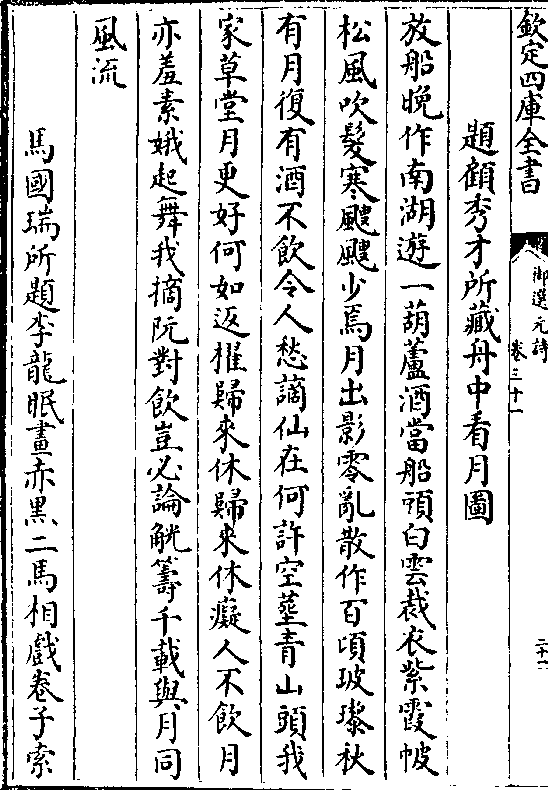 欽定四庫全書
御選元詩
卷三十一
題顧秀才所藏舟中看月圖
放船晚作南湖遊一葫蘆酒當船頭白雲裁衣紫霞帔
松風吹髮寒颼颼少焉月出影零亂散作百頃玻瓈秋
有月復有酒不飲令人愁謫仙在何許空塟青山頭我
家草堂月更好何如返櫂歸來休歸來休癡人不飲月
亦羞素娥起舞我摘阮對飲豈必論觥籌千載與月同
風流
馬國瑞所題李龍眠畫赤黑二馬相戲卷子索